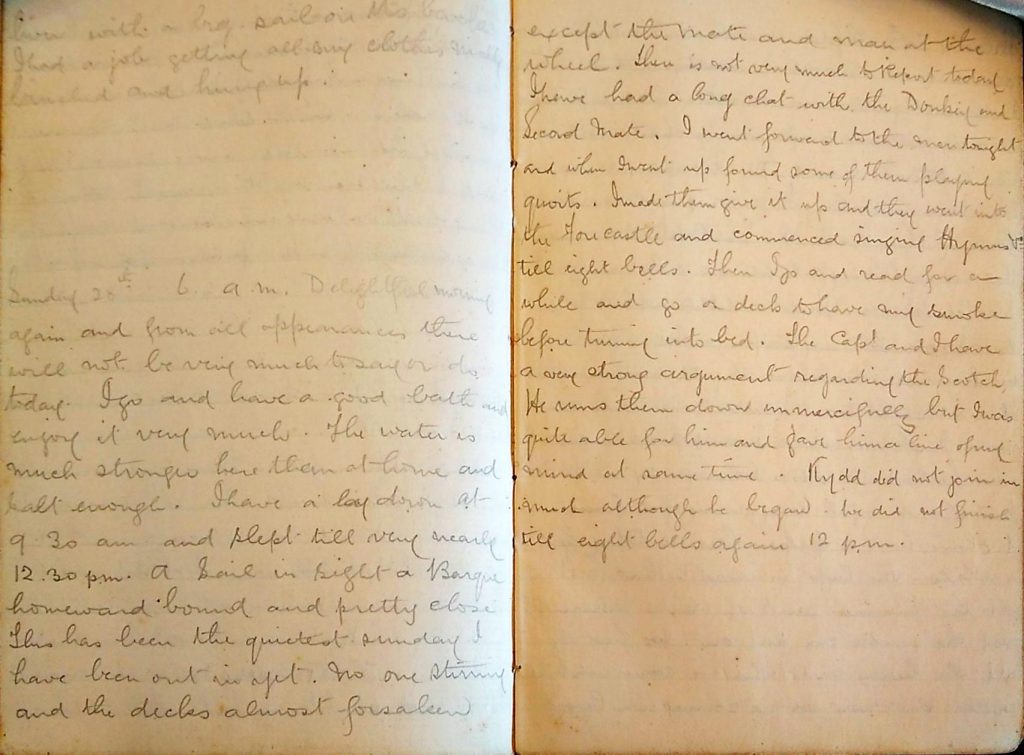 with a big sail on this
I had a job getting all my clothes
and hung up.
Sunday 20th 6. a.m. Delightful morning
again and from all appearances there
will not be very much to say or do
today. I go and have a good bath and
enjoy it very much. The water is
much stronger here than at home and
salt enough. I have a lay down at
9.30 am and slept till very nearly
12.30 pm. A Sail in Sight a Barque
homeward bound and pretty close
This has been the quietest sunday I
have been out in yet. No one stirring
and the decks almost forsaken
except the Mate and man at the
wheel. There is not very much to Report today
I have had a long chat with the Donkey and
Second Mate. I went forward to the men tonight
and when I went up found some of them playing
quoits. I made them give it up and they went into
the Forecastle and commenced singing Hymns
till eight bells. Then I go and read for a
while and go on deck to have my smoke
before turning into bed. The Capt and I have
a very strong argument regarding the Scotch
He runs them down unmercifully but I was
quite able for him and gave him a line of my
mind at same time. Kydd did not join in
much although he began. We did not finish
till eight bells again 12 pm.